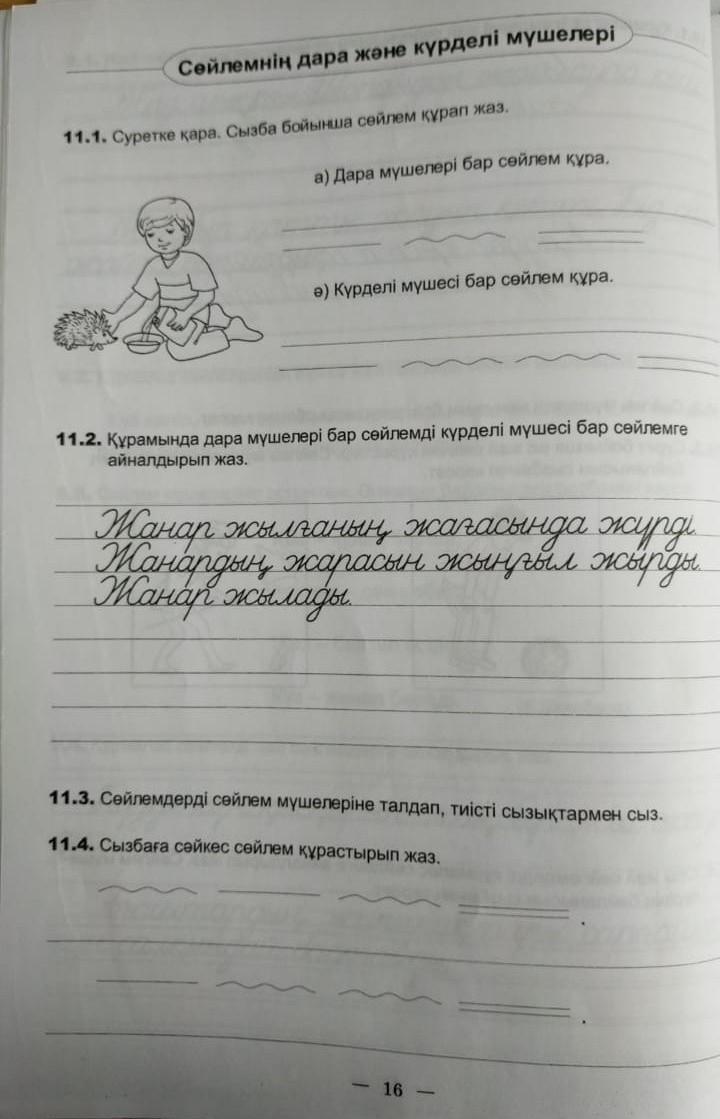 Сөйлемнің дара және күрделі мүшелері
11.1. Суретке қара. Сызба бойынша сөйлем құрап жаз.
а) Дара мүшелері бар сөйлем құра.
ә) Күрделі мүшесі бар сөйлем құра.
11.2. Құрамында дара мүшелері бар сөйлемді күрделі мүшесі бар сөйлемге
айналдырып жаз.
Жанар жылғаның жағасында жүрді.
Жанардың жарасын жыңғыл жырды.
Жанар жылады.
11.3. Сөйлемдерді сөйлем мүшелеріне талдап, тиісті сызықтармен сыз.
11.4. Сызбаға сәйкес сөйлем құрастырып жаз.
— 16 —